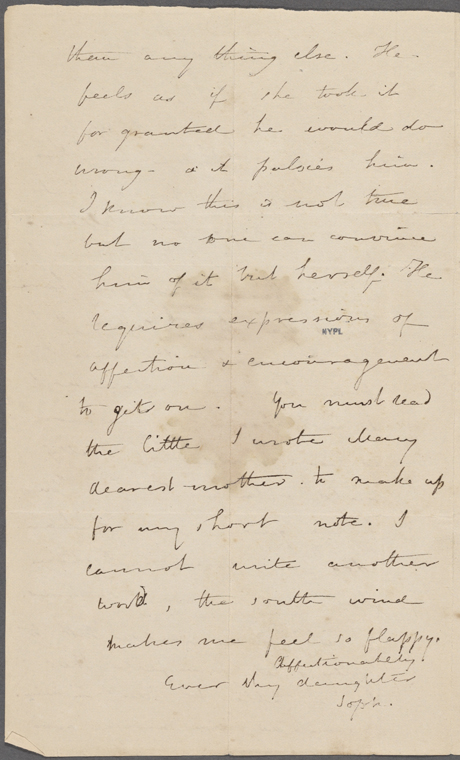 than any thing else. He
feels as if she took it
for granted he would do
wrong - & it palsies him.
I know this is not true
but no one can convince
him of it but herself. He
requires expressions of
NYPL
affection & encouragement
to get on. You must read
the little I wrote Mary
dearest mother. to make up
for my short note. I
cannot write another
word, the south wind
makes me feel so flappy.
Affectionately.
Ever yr daughter
Soph.